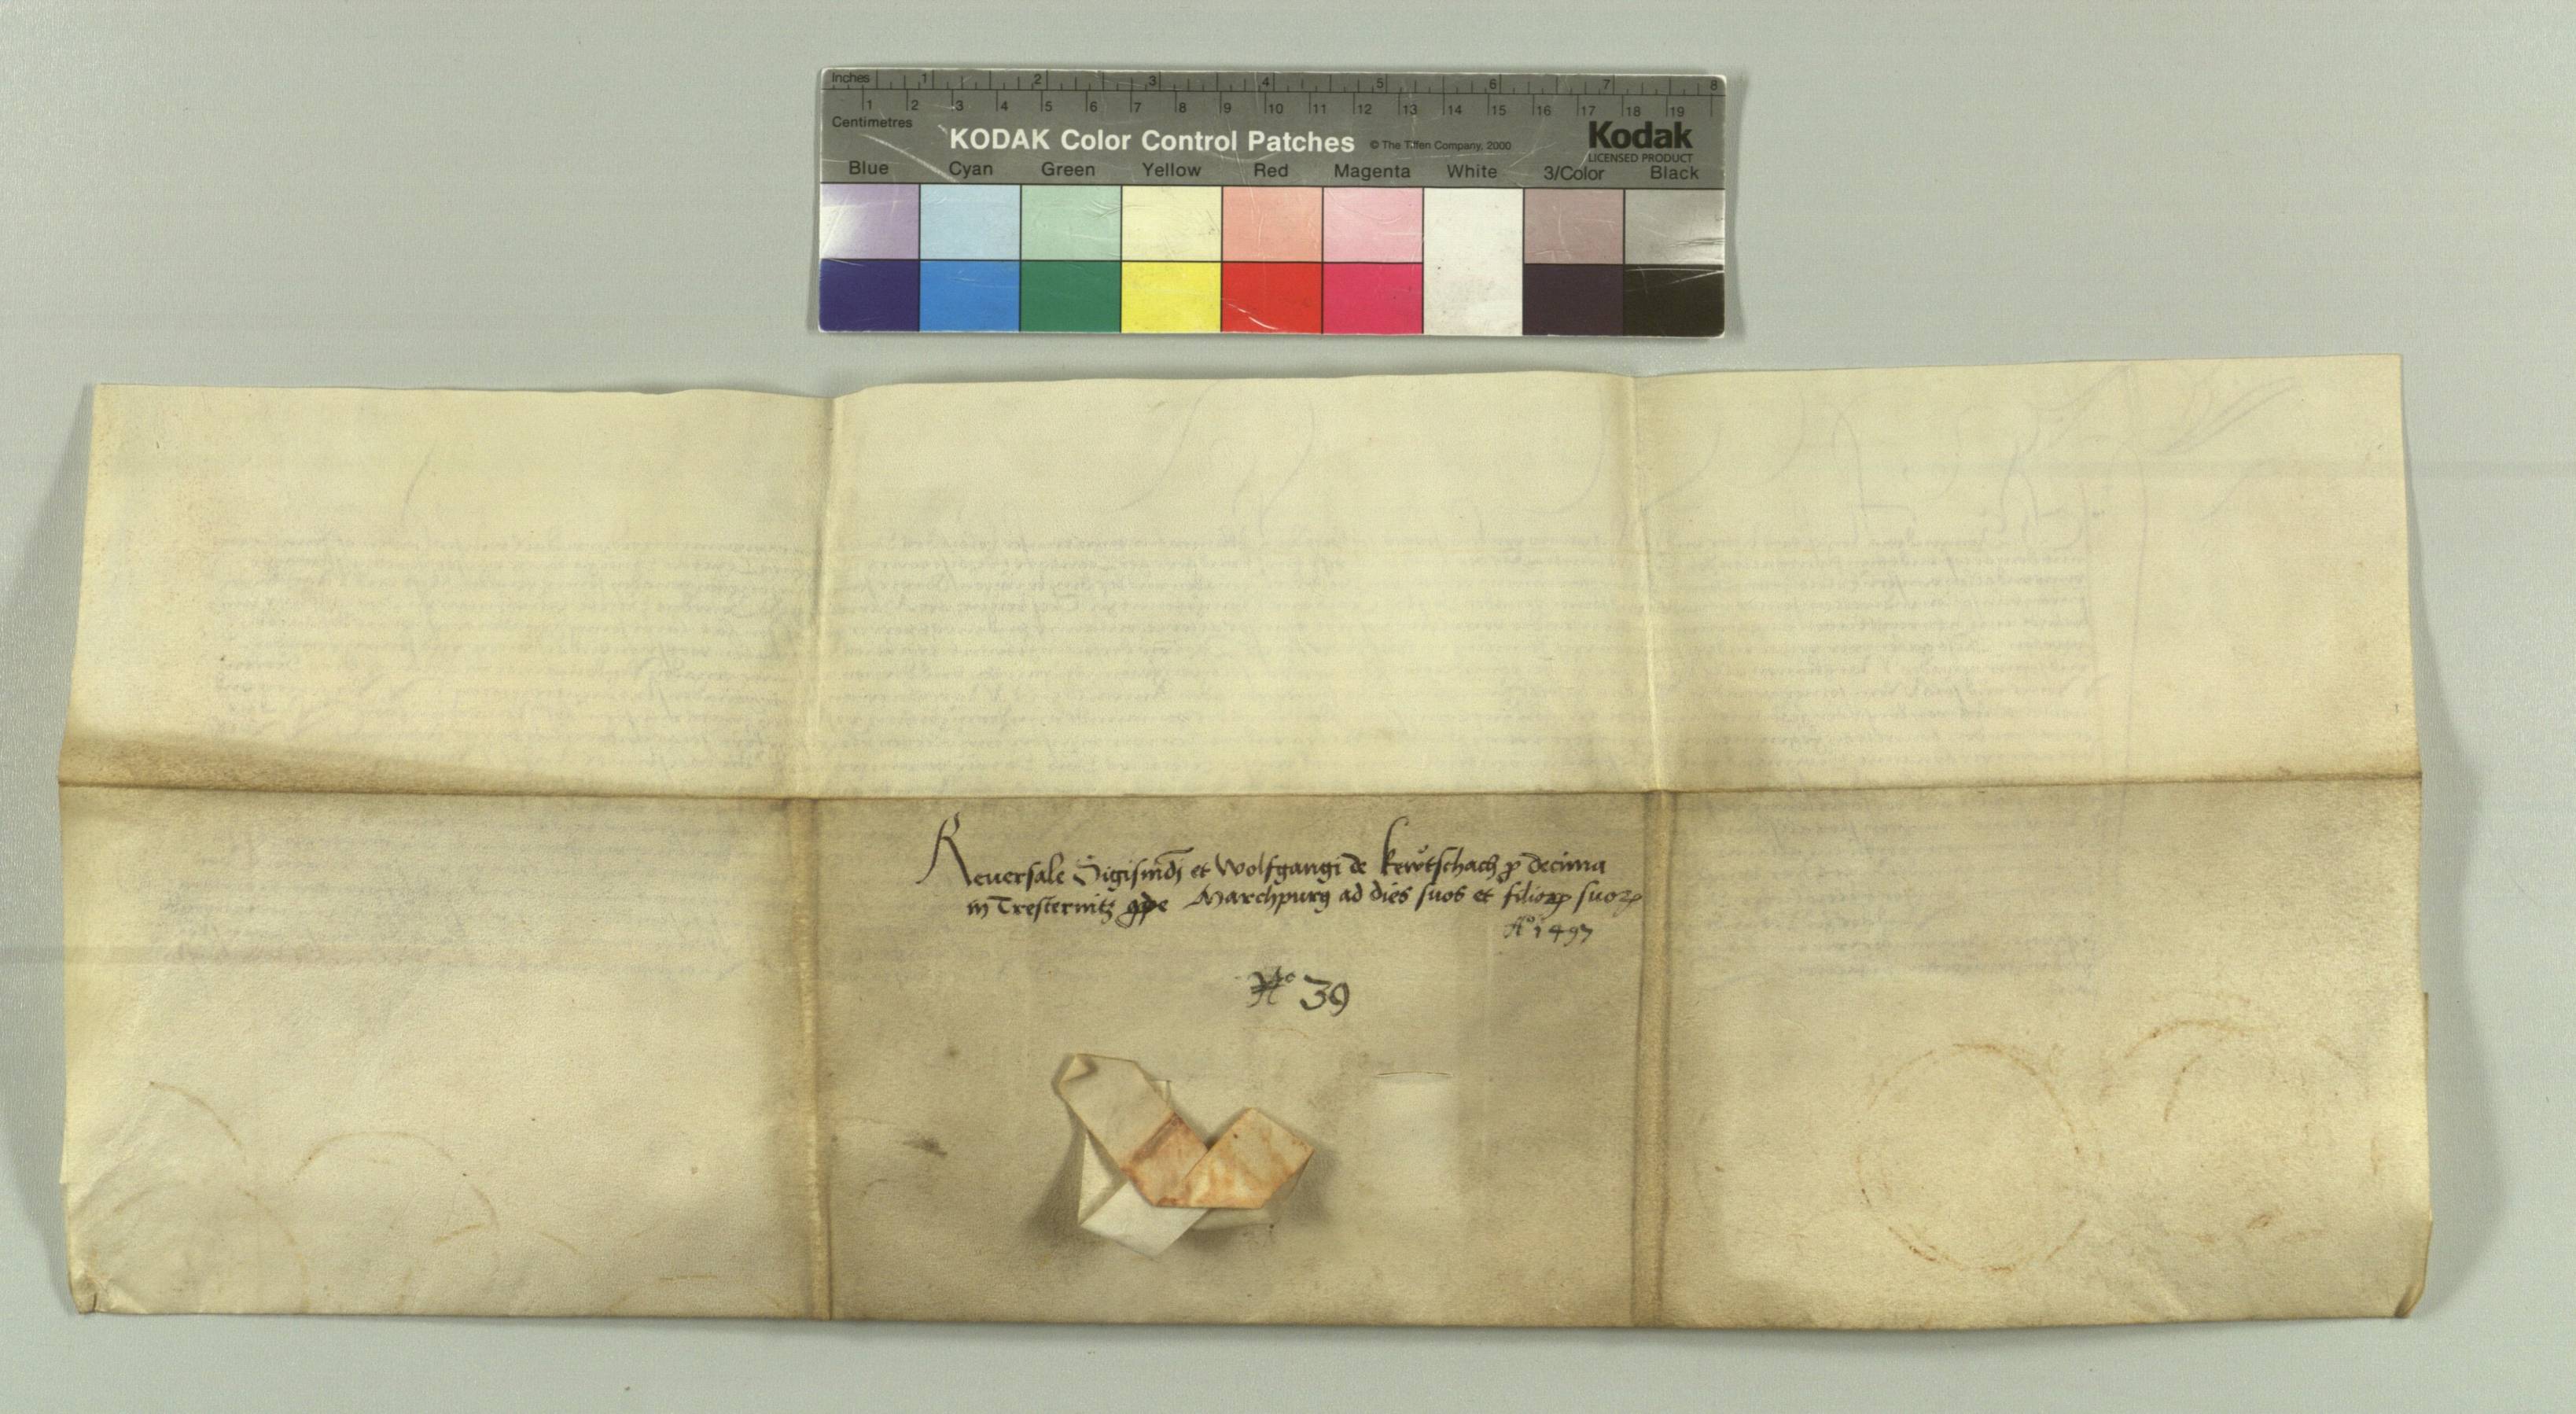 Inches 1 2 3 4 5 6 7 8
1 2 3 4 5 6 7 8 9 10 11 12 13 14 15 16 17 18 19
Centimetres
KODAK Color Control Patches © The Tiffen Company, 2000 Kodak
LICENSED PRODUCT
Blue Cyan Green Yellow Red Magenta White 3/Color Black
Reuersale Sigismdj et Wolfgangi de kewtschach ꝓ decima
in Tresternitz Marchpurg ad dies suos et filioꝝ suoꝝ
Aº 1497
Nº 39